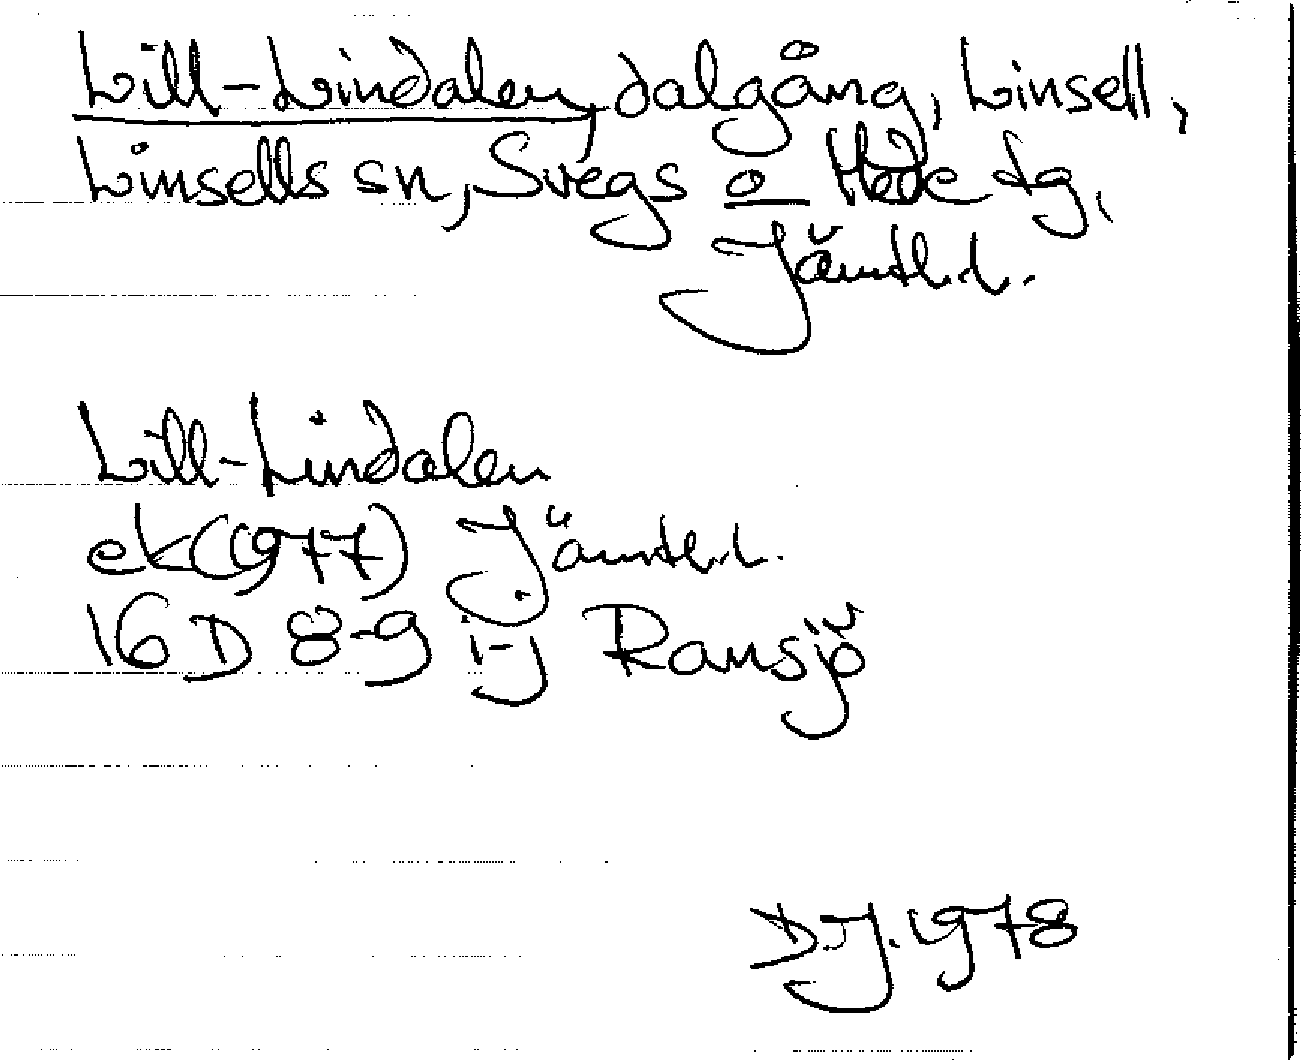 Lill-Lindalen, dalgång, Linsell,
Linsells sn, Svegs o Hede tg,
Jämtl.l.
Lill-Lindalen
ek(1977) Jämtl.l.
16 D 8-9 i-j Ransjö
D.J. 1978